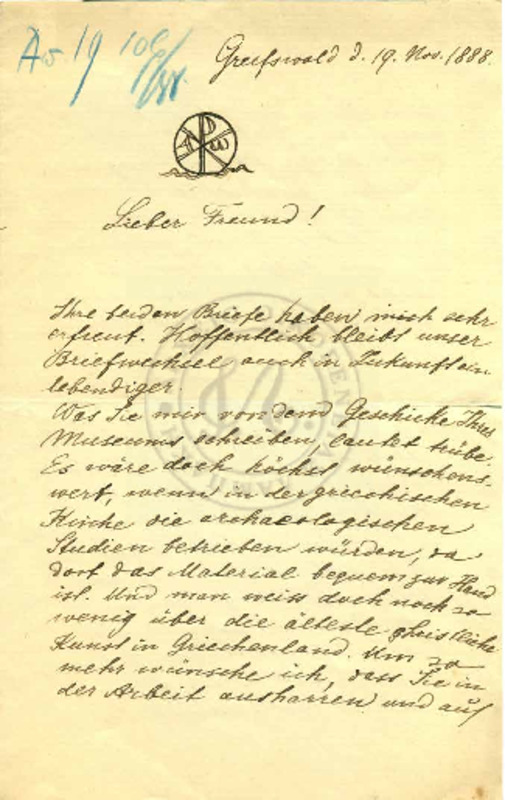 Av 19 106/88.
Greifswald d. 19. Nov. 1888.
Lieber Freund!
Ihre beiden Briefe haben mich sehr
erfreut. Hoffentlich bleibt unser
Briefwechsel auch in Zukunft ein
lebendiger.
Was Sie mir von dem Geschicke Ihres
Museums schreiben, lautet trübe.
Es wäre doch höchst wünschens-
wert, wenn in der griechischen
Kirche die archaeologischen
Studien betrieben würden, da
dort das Material bequem zur Hand
ist. Und man weiss doch noch so
wenig über die älteste christliche
Kunst in Griechenland. Um so
mehr wünsche ich, dass Sie in
der Arbeit ausharren und auf